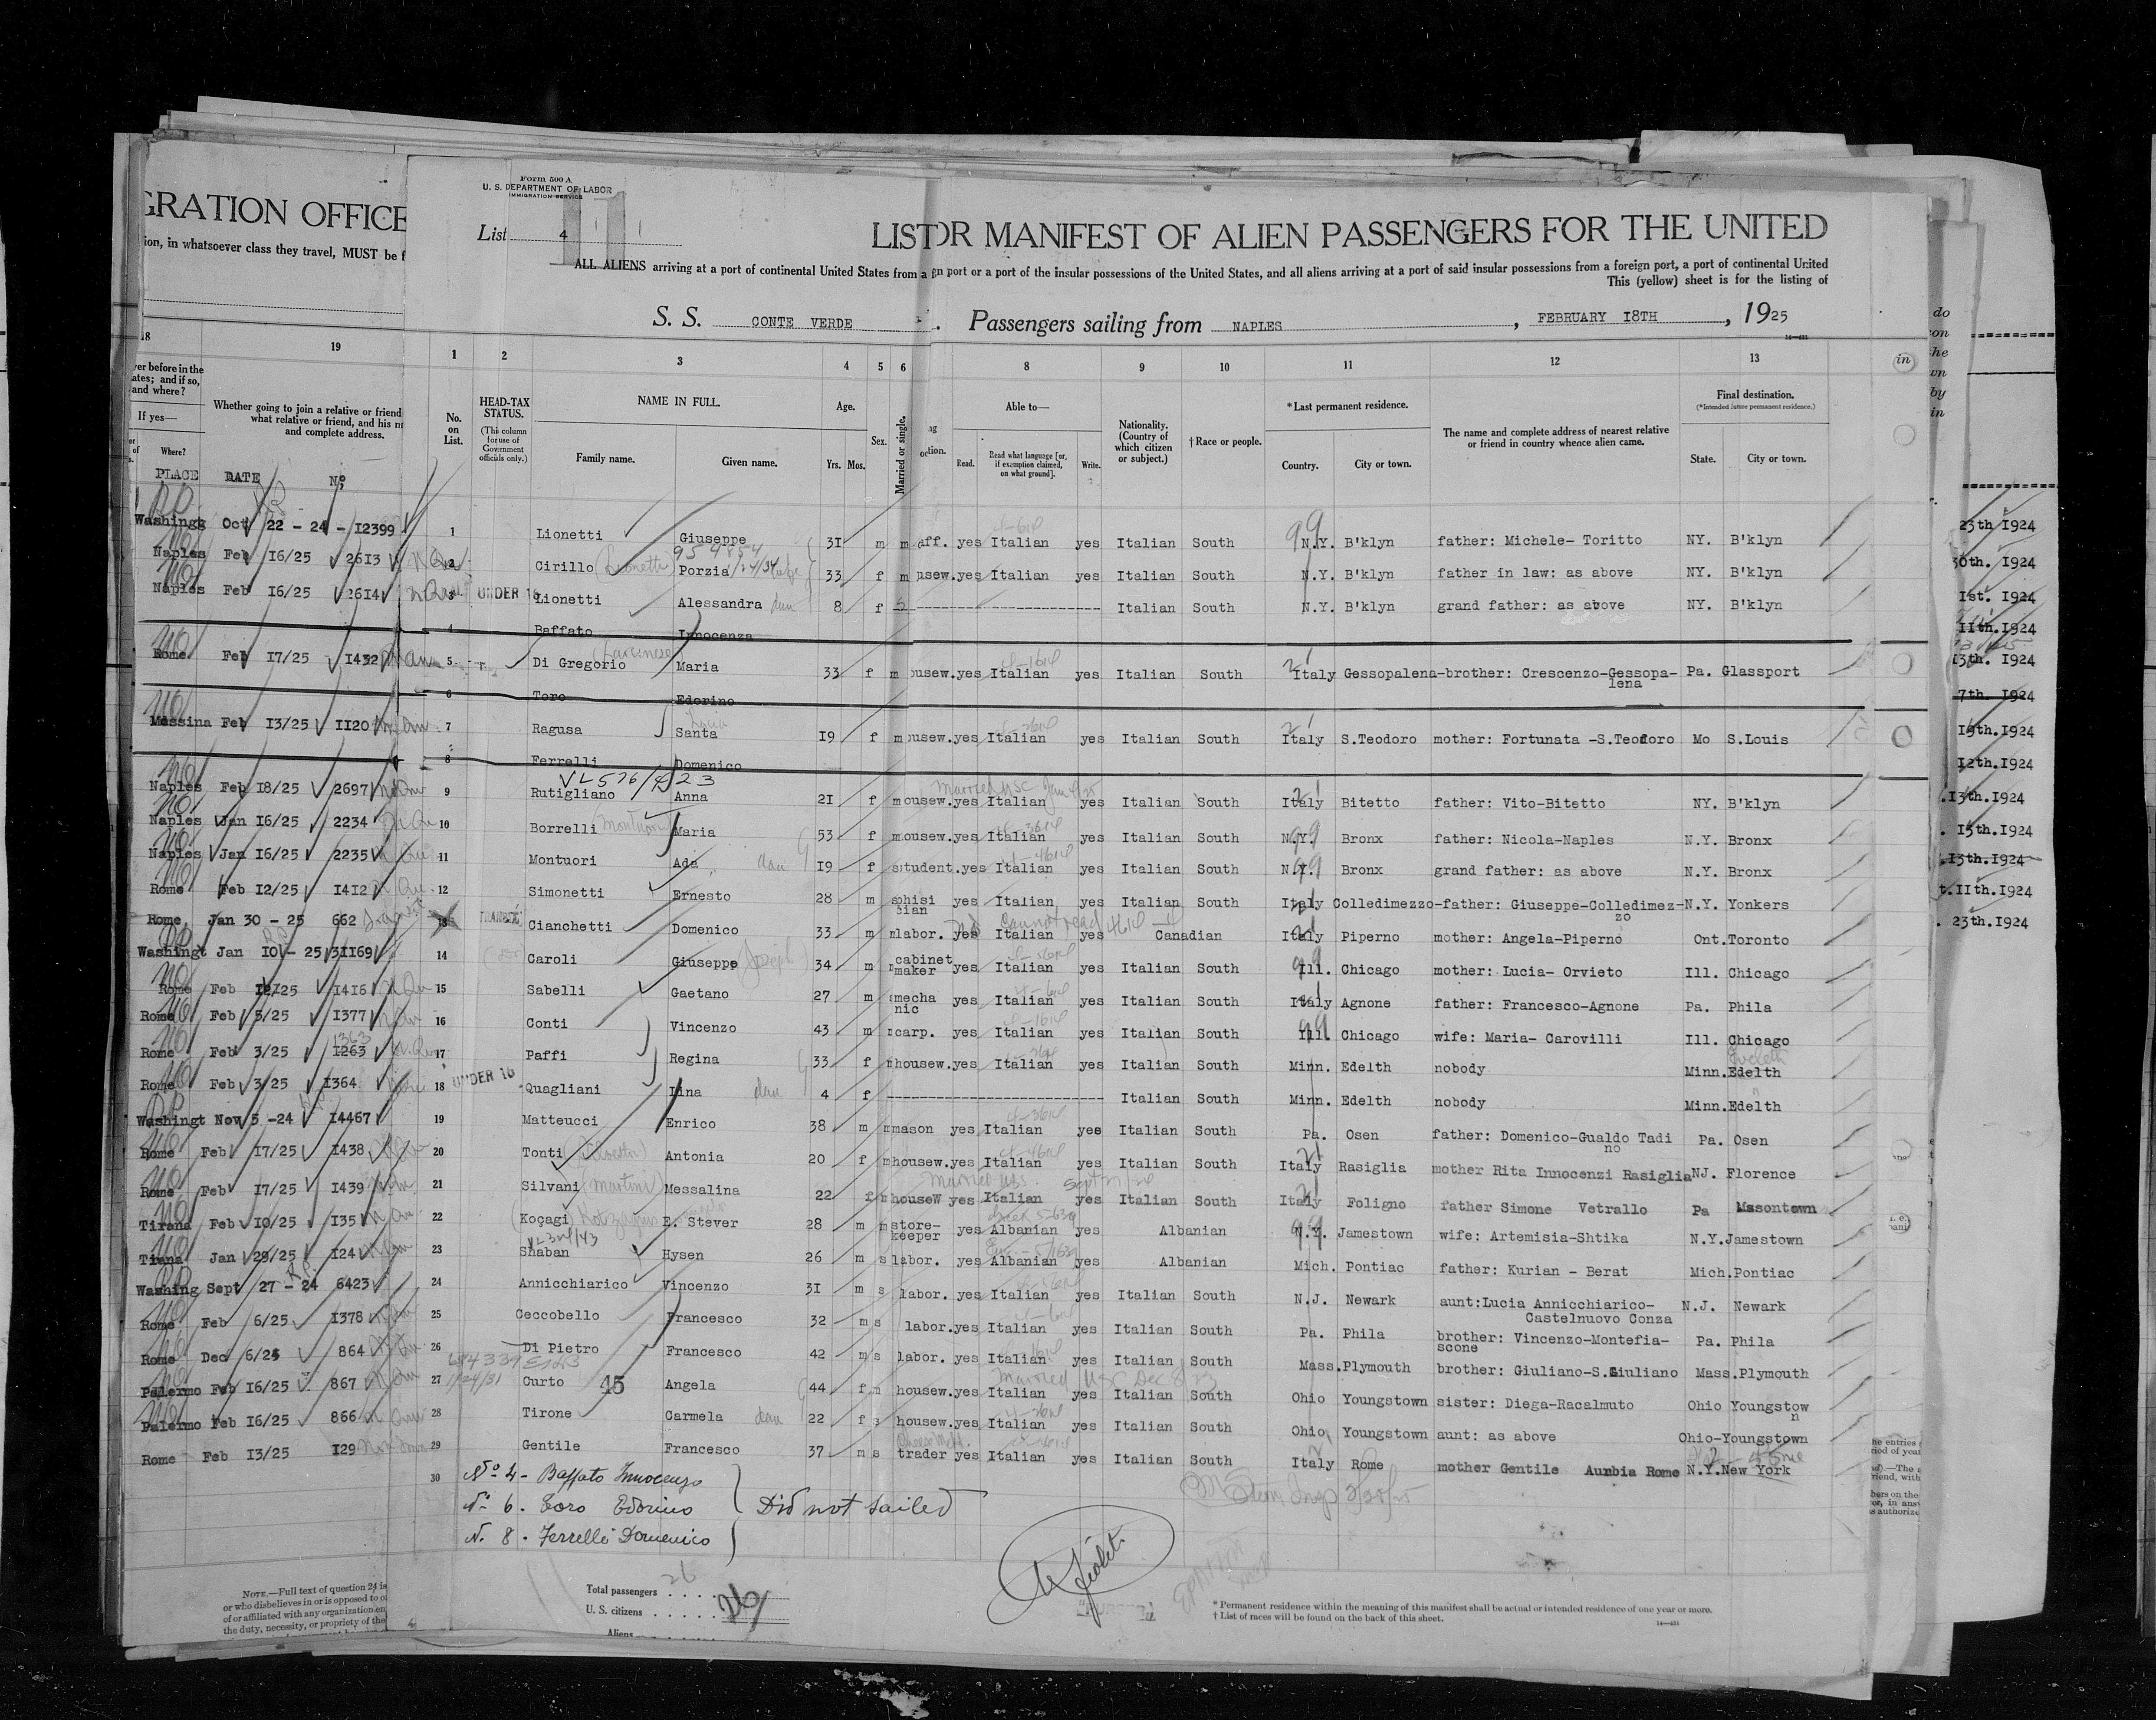 Form 500 A
U. S. DEPARTMENT OF LABOR
IMMIGRATION SERVICE
GRATION OFFICE
ion, in whatsoever class they travel, MUST be f
List 4
LIST OR MANIFEST OF ALIEN PASSENGERS FOR THE UNITED
ALL ALIENS arriving at a port of continental United States from a gn port or a port of the insular possessions of the United States, and all aliens arriving at a port of said insular possessions from a foreign port, a port of continental United
This (yellow) sheet is for the listing of
S. S. CONTE VERDE . Passengers sailing from NAPLES , FEBRUARY 18TH , 1925
18 19 1 2 3 4 5 6 8 9 10 11 12 13
ver before in the
ates; and if so,
and where?
If yes—
Where?
Whether going to join a relative or friend
what relative or friend, and his n
and complete address.
No. on List.
HEAD-TAX STATUS.
(This column for use of Government officials only.)
NAME IN FULL.
Family name. Given name.
Age.
Yrs. Mos.
Sex.
Married or single.
Able to—
Read. Read what language [or, if exemption claimed, on what ground]. Write.
Nationality. (Country of which citizen or subject.)
†Race or people.
*Last permanent residence.
Country. City or town.
The name and complete address of nearest relative or friend in country whence alien came.
Final destination.
(*Intended future permanent residence.)
State. City or town.
PLACE DATE Nº
Washingt Oct 22 - 24 - I2399 1 Lionetti Giuseppe 3I m m aff. yes Italian yes Italian South N.Y. B'klyn father: Michele- Toritto NY. B'klyn
954854
Naples Feb 16/25 26I3 2 Cirillo (Lionetti) Porzia 33 f m usew. yes Italian yes Italian South N.Y. B'klyn father in law: as above NY. B'klyn
Naples Feb 16/25 26I4 3 UNDER 16 Lionetti Alessandra dau 8 f Italian South N.Y. B'klyn grand father: as above NY. B'klyn
4 Baffato Innocenza
Rome Feb 17/25 I432 5 Di Gregorio Maria 33 f m ousew. yes Italian yes Italian South Italy Gessopalena-brother: Crescenzo-Gessopa-lena Pa. Glassport
6 Toro Edorino
Messina Feb 13/25 II20 7 Ragusa Santa I9 f m ousew. yes Italian yes Italian South Italy S.Teodoro mother: Fortunata -S.Teodoro Mo S.Louis
8 Ferrelli Domenico
Naples Feb 18/25 2697 9 Rutigliano Anna 2I f m ousew. yes Italian yes Italian South Italy Bitetto father: Vito-Bitetto NY. B'klyn
Naples Jan 16/25 2234 10 Borrelli (Montuori) Maria 53 f m ousew. yes Italian yes Italian South N.Y. Bronx father: Nicola-Naples N.Y. Bronx
Naples Jan 16/25 2235 11 Montuori Ada dau I9 f s student. yes Italian yes Italian South N.Y. Bronx grand father: as above N.Y. Bronx
Rome Feb 12/25 I4I2 12 Simonetti Ernesto 28 m s phisi cian yes Italian yes Italian South Italy Colledimezzo-father: Giuseppe-Colledimez-zo N.Y. Yonkers
Rome Jan 30 - 25 662 13 TRANSIT Cianchetti Domenico 33 m m labor. yes Italian yes Canadian Italy Piperno mother: Angela-Piperno Ont. Toronto
cannot read
Washingt Jan 10 - 25 3II69 14 Caroli Giuseppe (Joseph) 34 m cabinet maker yes Italian yes Italian South Ill. Chicago mother: Lucia- Orvieto Ill. Chicago
Rome Feb 12/25 I4I6 15 Sabelli Gaetano 27 m mecha nic yes Italian yes Italian South Italy Agnone father: Francesco-Agnone Pa. Phila
Rome Feb 5/25 I377 16 Conti Vincenzo 43 m carp. yes Italian yes Italian South Ill. Chicago wife: Maria- Carovilli Ill. Chicago
Rome Feb 3/25 I263 1363 17 Paffi Regina 33 f m housew. yes Italian yes Italian South Minn. Edelth nobody Minn. Edelth
Rome Feb 3/25 I364 18 UNDER 16 Quagliani Lina dau 4 f Italian South Minn. Edelth nobody Minn. Edelth
Washingt Nov 5 -24 I4467 19 Matteucci Enrico 38 m m mason yes Italian yes Italian South Pa. Osen father: Domenico-Gualdo Tadi no Pa. Osen
Rome Feb 17/25 I438 20 Tonti Antonia 20 f m housew. yes Italian yes Italian South Italy Rasiglia mother Rita Innocenzi Rasiglia NJ. Florence
Rome Feb 17/25 I439 21 Silvani (Martini) Messalina 22 f m houseW yes Italian yes Italian South Italy Foligno father Simone Vetrallo Pa Masontown
Tirana Feb 10/25 I35 22 Koçagi E. Stever 28 m m store-keeper yes Albanian yes Albanian N.Y. Jamestown wife: Artemisia-Shtika N.Y. Jamestown
Tirana Jan 29/25 I24 23 Shaban Hysen 26 m s labor. yes Albanian yes Albanian Mich. Pontiac father: Kurian - Berat Mich. Pontiac
Washing Sept 27 - 24 6423 24 Annicchiarico Vincenzo 3I m s labor. yes Italian yes Italian South N.J. Newark aunt:Lucia Annicchiarico-Castelnuovo Conza N.J. Newark
Rome Feb 6/25 I378 25 Ceccobello Francesco 32 m s labor. yes Italian yes Italian South Pa. Phila brother: Vincenzo-Montefia-scone Pa. Phila
Rome Dec 6/24 864 26 Di Pietro Francesco 42 m s labor. yes Italian yes Italian South Mass. Plymouth brother: Giuliano-S.Giuliano Mass. Plymouth
Palermo Feb 16/25 867 27 Curto 45 Angela 44 f m housew. yes Italian yes Italian South Ohio Youngstown sister: Diega-Racalmuto Ohio Youngstown
Palermo Feb 16/25 866 28 Tirone Carmela dau 22 f s housew. yes Italian yes Italian South Ohio Youngstown aunt: as above Ohio-Youngstown
Rome Feb 13/25 I29 29 Gentile Francesco 37 m s trader yes Italian yes Italian South Italy Rome mother Gentile Aurbia Rome N.Y. New York
30 Nº 4 - Baffato Innocenzo
Nº 6 . Toro Edorino } Did not sailed
N. 8 . Ferrelli Domenico
Total passengers . . . . 26
U. S. citizens . . . . .
Aliens
NOTE.—Full text of question 24 is
or who disbelieves in or is opposed to o
of or affiliated with any organization en
the duty, necessity, or propriety of the
* Permanent residence within the meaning of this manifest shall be actual or intended residence of one year or more.
† List of races will be found on the back of this sheet.
23th 1924
30th. 1924
Ist. 1924
IIth.1924
I3th. 1924
7th. 1924
I9th.1924
I2th.1924
.I3th.1924
. I5th.1924
.I3th.1924
t.IIth.1924
. 23th.1924